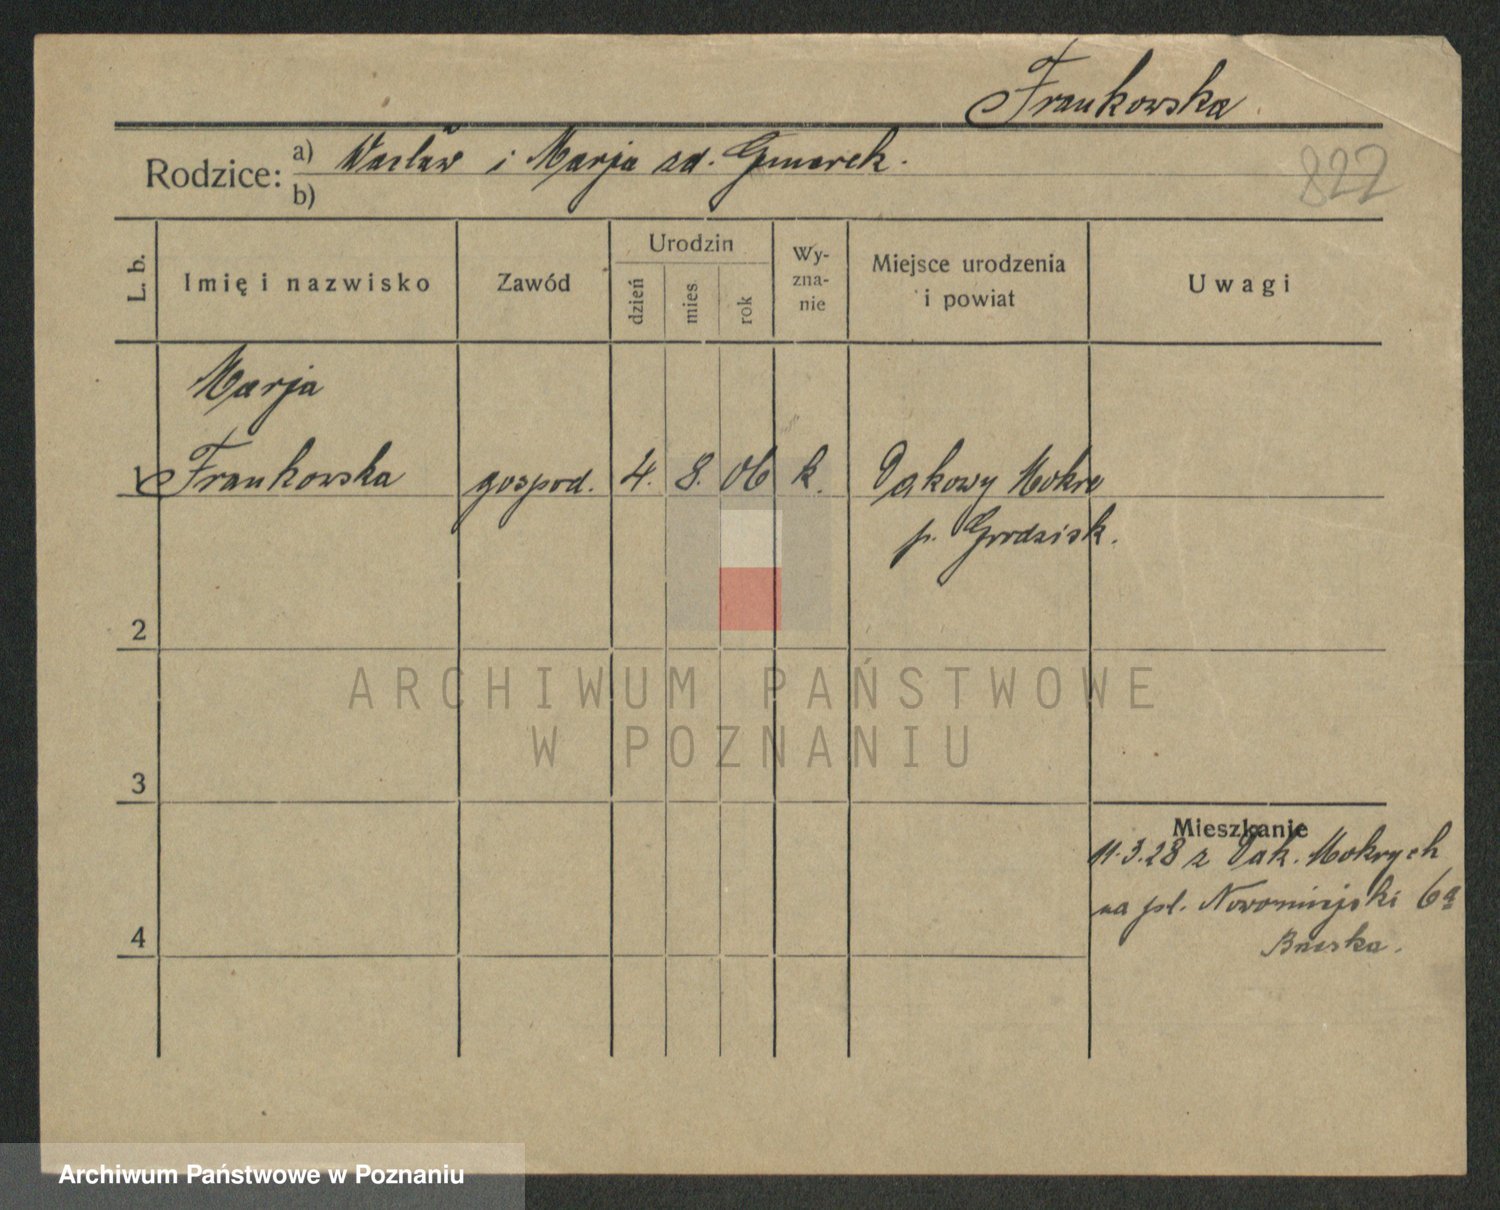 Frankowska
Rodzice: a) Wacław i Marja zd. Gmerek.
b)
822
L. b.
Imię i nazwisko
Zawód
Urodzin
dzień
mies
rok
Wy-
zna-
nie
Miejsce urodzenia
i powiat
Uwagi
Marja
1 Frankowska gospod. 4. 8. 06 k. Dakowy Mokre
p. Grodzisk.
2
ARCHIWUM PAŃSTWOWE
W POZNANIU
3
Mieszkanie
11.3.28 z Dak. Mokrych
na pl. Nowomiejski 6a
4
Archiwum Państwowe w Poznaniu